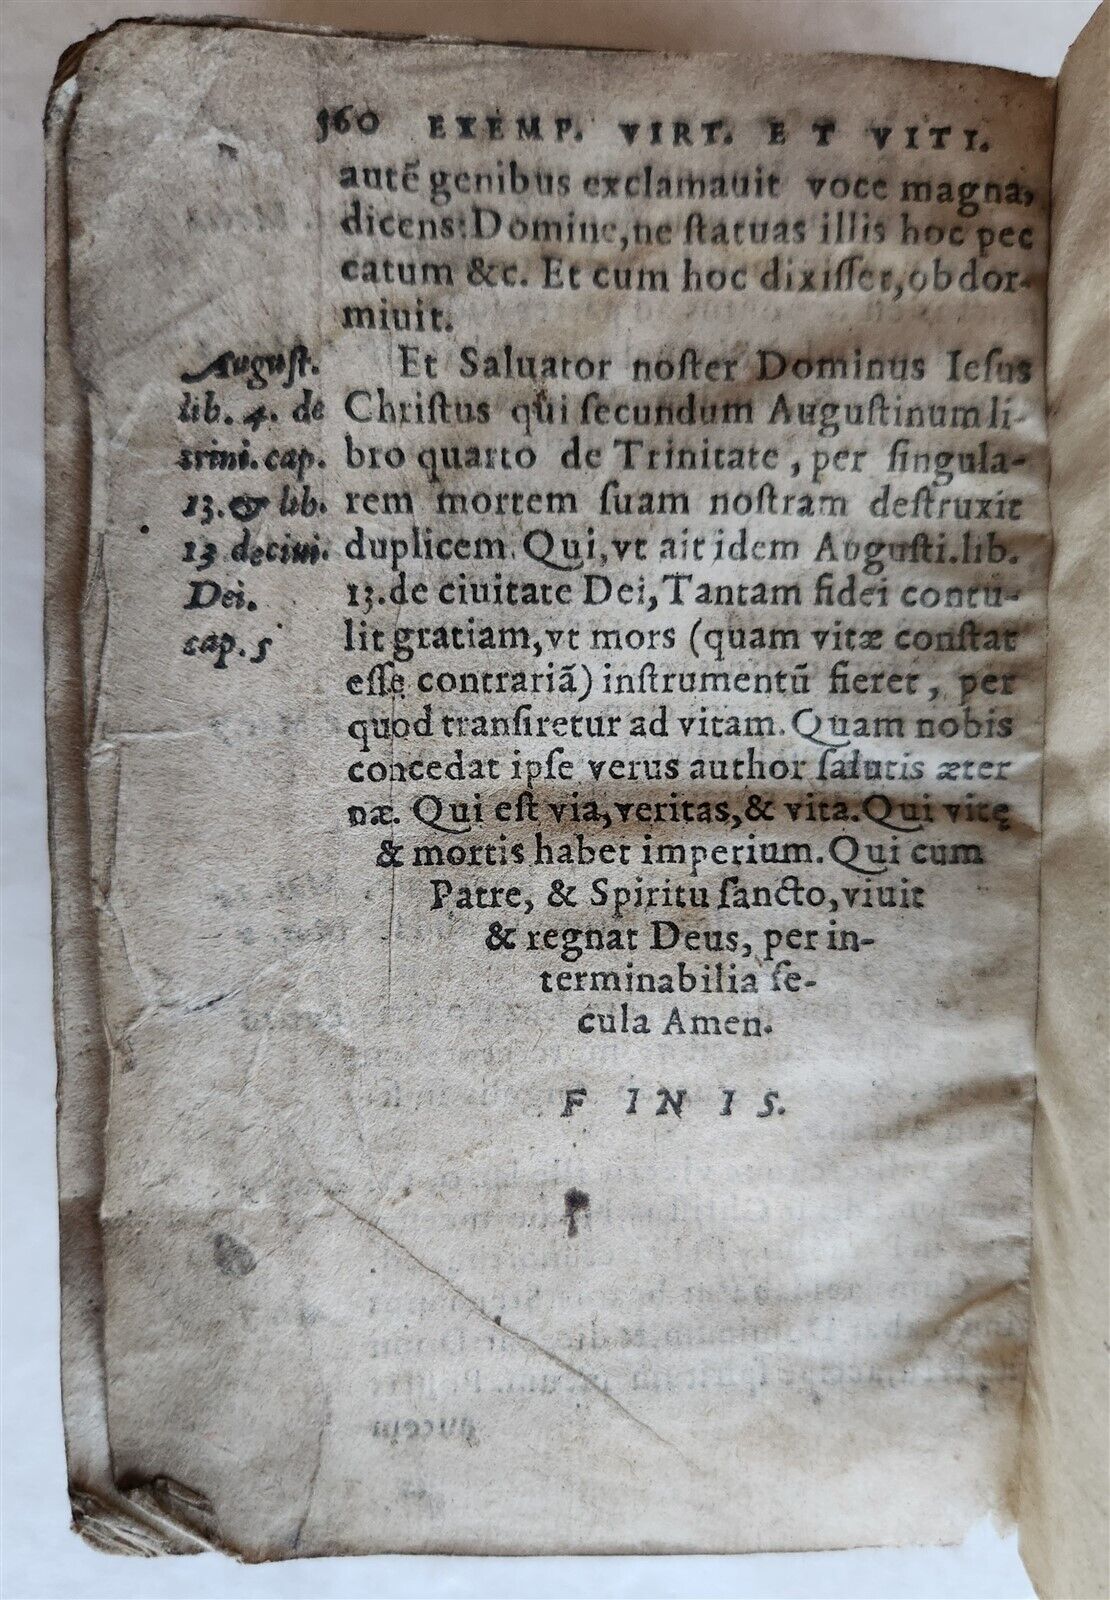 360 EXEMP. VIRT. ET VITI.
autē genibus exclamauit voce magna,
dicens: Domine, ne ſtatuas illis hoc pec
catum &c. Et cum hoc dixiſſet, obdor-
miuit.
Et Saluator noſter Dominus Ieſus
Chriſtus qui ſecundum Auguſtinum li-
bro quarto de Trinitate, per ſingula-
rem mortem ſuam noſtram deſtruxit
duplicem. Qui, vt ait idem Auguſti. lib.
13. de ciuitate Dei, Tantam fidei contu-
lit gratiam, vt mors (quam vitæ conſtat
eſſe contrariā) inſtrumentū fieret, per
quod tranſiretur ad vitam. Quam nobis
concedat ipſe verus author ſalutis æter
næ. Qui eſt via, veritas, & vita. Qui vitę
& mortis habet imperium. Qui cum
Patre, & Spiritu ſancto, viuit
& regnat Deus, per in-
terminabilia ſe-
cula Amen.
Auguſt.
lib. 4. de
trini. cap.
13. & lib.
13 de ciui.
Dei.
cap. 5
F I N I S.